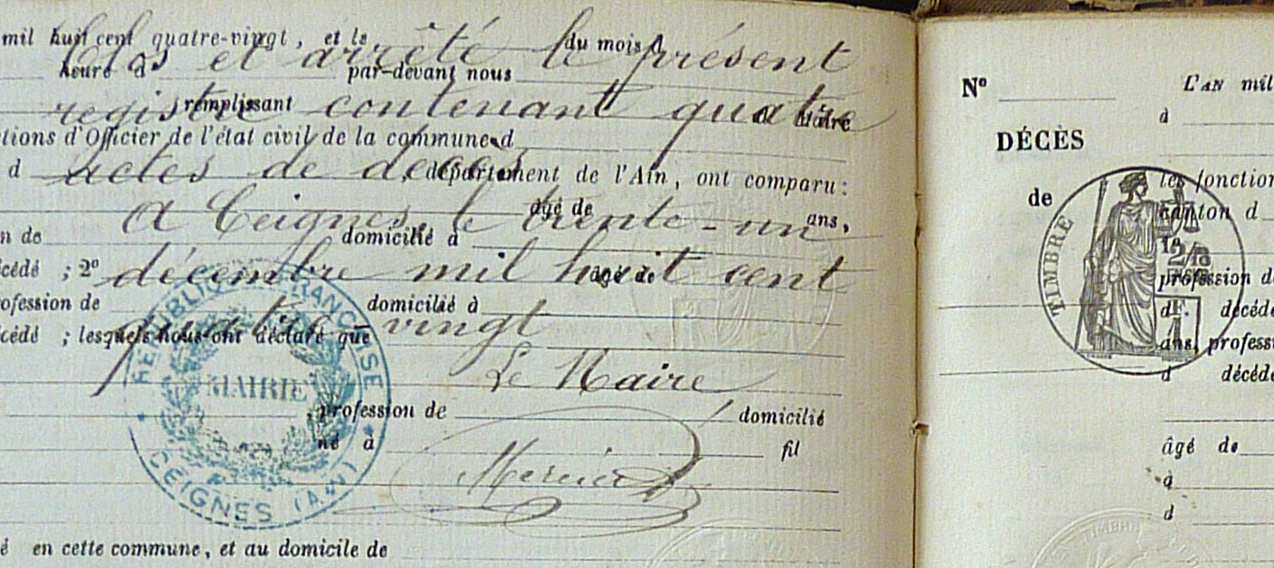 mil huit cent quatre-vingt, et le du mois d
Clos et arrêté le présent
heure d par-devant nous
registre contenant quatre
remplissant Maire
tions d'Officier de l'état civil de la commune d
actes de décès
d , département de l'Ain, ont comparu :
A Ceignes, le trente-un
âgé de ans,
n de domicilié à
décembre mil huit cent
cédé ; 2º âgé de
ofession de domicilié à
quatre vingt
cédé ; lesquels nous ont déclaré que
Le Maire
, profession de domicilié
né à fil
Mercier
é en cette commune, et au domicile de
RÉPUBLIQUE FRANÇAISE
MAIRIE
CEIGNES (AIN)
Nº L'AN mil
d
DÉCÈS
de les fonction
canton d
TIMBRE
profession de
dF. décédé
ans, profess
d décédé
âgé de
à
d